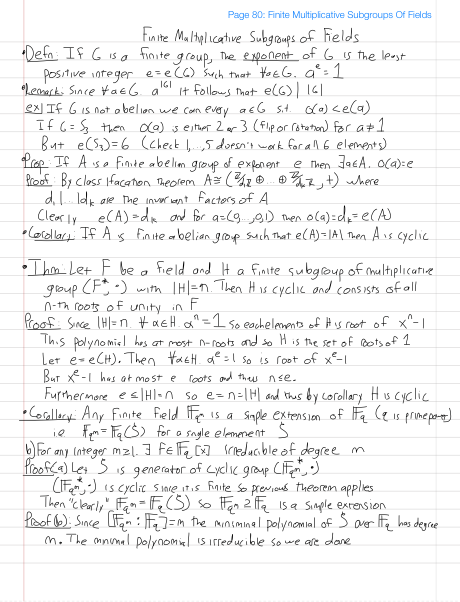 Page 80: Finite Multiplicative Subgroups Of Fields
Finite Multiplicative Subgroups of Fields
• Defn: If G is a finite group, the exponent of G is the least
positive integer e = e(G) such that ∀a∈G. a^e = 1
• Remark: Since ∀a∈G. a^|G| it follows that e(G) | |G|
ex] If G is not abelian we can every a∈G s.t. o(a) < e(a)
If G = S₃ then o(a) is either 2 or 3 (flip or rotation) for a ≠ 1
But e(S₃) = 6 (check 1,..,5 doesn't work for all 6 elements)
• Prop: If A is a finite abelian group of exponent e then ∃a∈A. o(a) = e
Proof: By classification theorem A ≅ (ℤ/d₁ℤ ⊕ .. ⊕ ℤ/dₖℤ, +) where
d₁|..|dₖ are the invariant factors of A
Clearly e(A) = dₖ and for a = (0,..,0,1) then o(a) = dₖ = e(A)
• Corollary: If A is finite abelian group such that e(A) = |A| then A is cyclic
• Thm: Let F be a field and H a finite subgroup of multiplicative
group (F*, ·) with |H| = n. Then H is cyclic and consists of all
n-th roots of unity in F
Proof: Since |H| = n ∀α∈H. αⁿ = 1 so each element of H is root of xⁿ - 1
This polynomial has at most n-roots and so H is the set of roots of 1
Let e = e(H). Then ∀α∈H. α^e = 1 so is root of x^e - 1
But x^e - 1 has at most e roots and thus n ≤ e.
Furthermore e ≤ |H| = n so e = n = |H| and thus by corollary H is cyclic
• Corollary: Any Finite Field 𝔽_{qᵐ} is a simple extension of 𝔽_q (q is prime power)
i.e 𝔽_{qᵐ} = 𝔽_q(ζ) for a single element ζ
b) For any integer m ≥ 1. ∃ f∈𝔽_q[x] irreducible of degree m
Proof(a) Let ζ is generator of cyclic group (𝔽_{qᵐ}*, ·)
(𝔽_{qᵐ}*, ·) is cyclic since it is finite so previous theorem applies
Then "clearly" 𝔽_{qᵐ} = 𝔽_q(ζ) so 𝔽_{qᵐ} ⊇ 𝔽_q is a simple extension
Proof(b): Since [𝔽_{qᵐ} : 𝔽_q] = m the minimal polynomial of ζ over 𝔽_q has degree
m. The minimal polynomial is irreducible so we are done